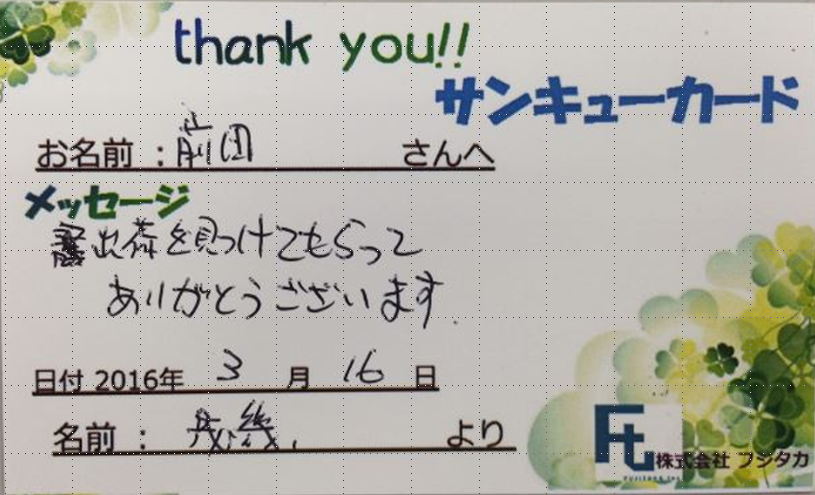 thank you!!
サンキューカード
お名前：前田 さんへ
メッセージ
出荷を見つけてもらって
ありがとうございます.
日付 2016年 3 月 16 日
名前： より
Ft
株式会社 フジタカ